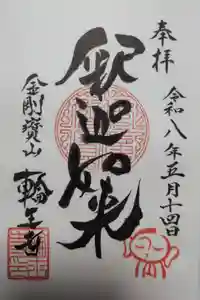 奉拝
令和八年五月十四日
釈迦如来
金剛寶山
輪王寺